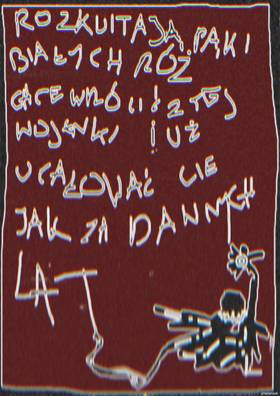 ROZKWITAJĄ PĄKI
BIAŁYCH RÓŻ
CHCE WRÓCIĆ Z TEJ
WOJENKI I UŻ
UCAŁOWAĆ CIE
JAK ZA DAWNYCH
LAT